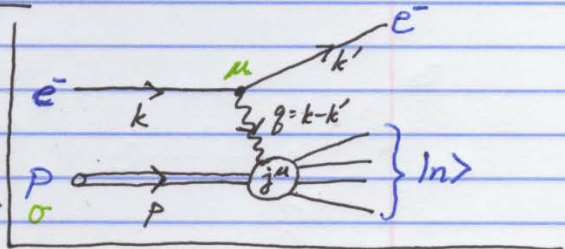 e⁻
μ
k'
e⁻
k
q = k - k'
P
σ
p
j^μ
|n>